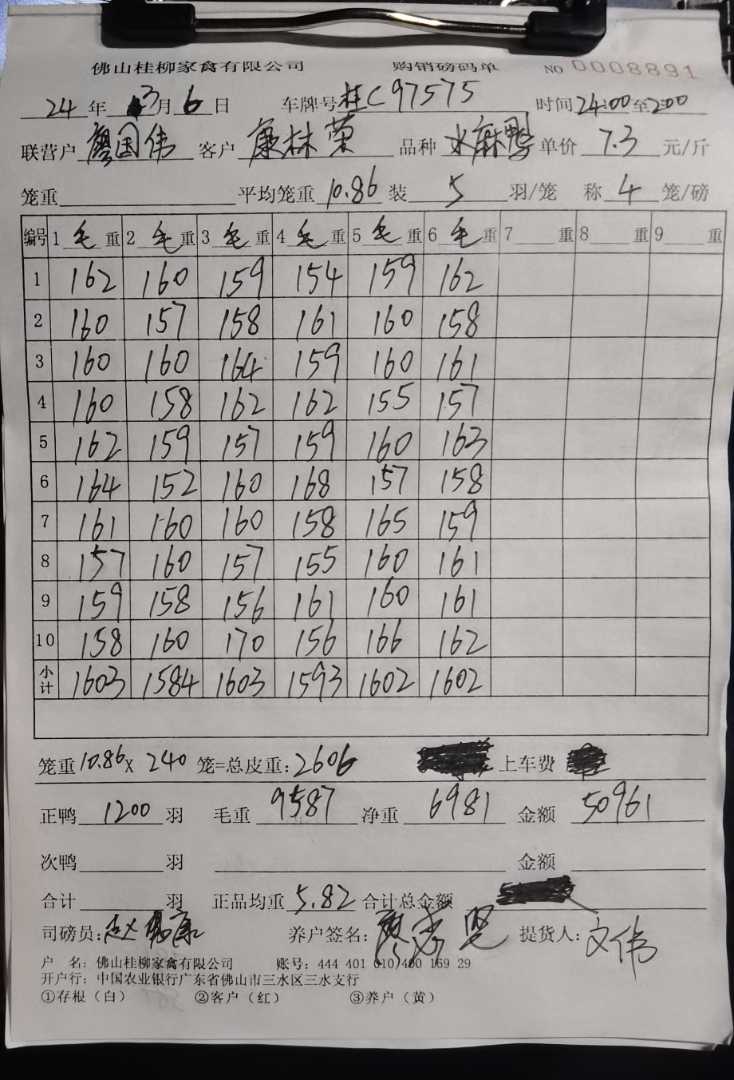 佛山桂柳家禽有限公司 购销磅码单 NO 0008891
24 年 3 月 6 日 车牌号 桂C97575 时间 24:00 至 2:00
联营户 廖国伟 客户 康林荣 品种 水麻鸭 单价 7.3 元/斤
笼重 平均笼重 10.86 装 5 羽/笼 称 4 笼/磅
编号 1 毛 重 2 毛 重 3 毛 重 4 毛 重 5 毛 重 6 毛 重 7 重 8 重 9 重
1 162 160 159 154 159 162
2 160 157 158 161 160 158
3 160 160 164 159 160 161
4 160 158 162 162 155 157
5 162 159 157 159 160 163
6 164 152 160 168 157 158
7 161 160 160 158 165 159
8 157 160 157 155 160 161
9 159 158 156 161 160 161
10 158 160 170 156 166 162
小计 1603 1584 1603 1593 1602 1602
笼重 10.86 X 240 笼=总皮重: 2606 上车费
正鸭 1200 羽 毛重 9587 净重 6981 金额 50961
次鸭 羽 金额
合计 羽 正品均重 5.82 合计总金额
司磅员: 养户签名: 提货人: 文伟
户 名: 佛山桂柳家禽有限公司 账号: 444 401 010 400 169 29
开户行: 中国农业银行广东省佛山市三水区三水支行
①存根（白） ②客户（红） ③养户（黄）